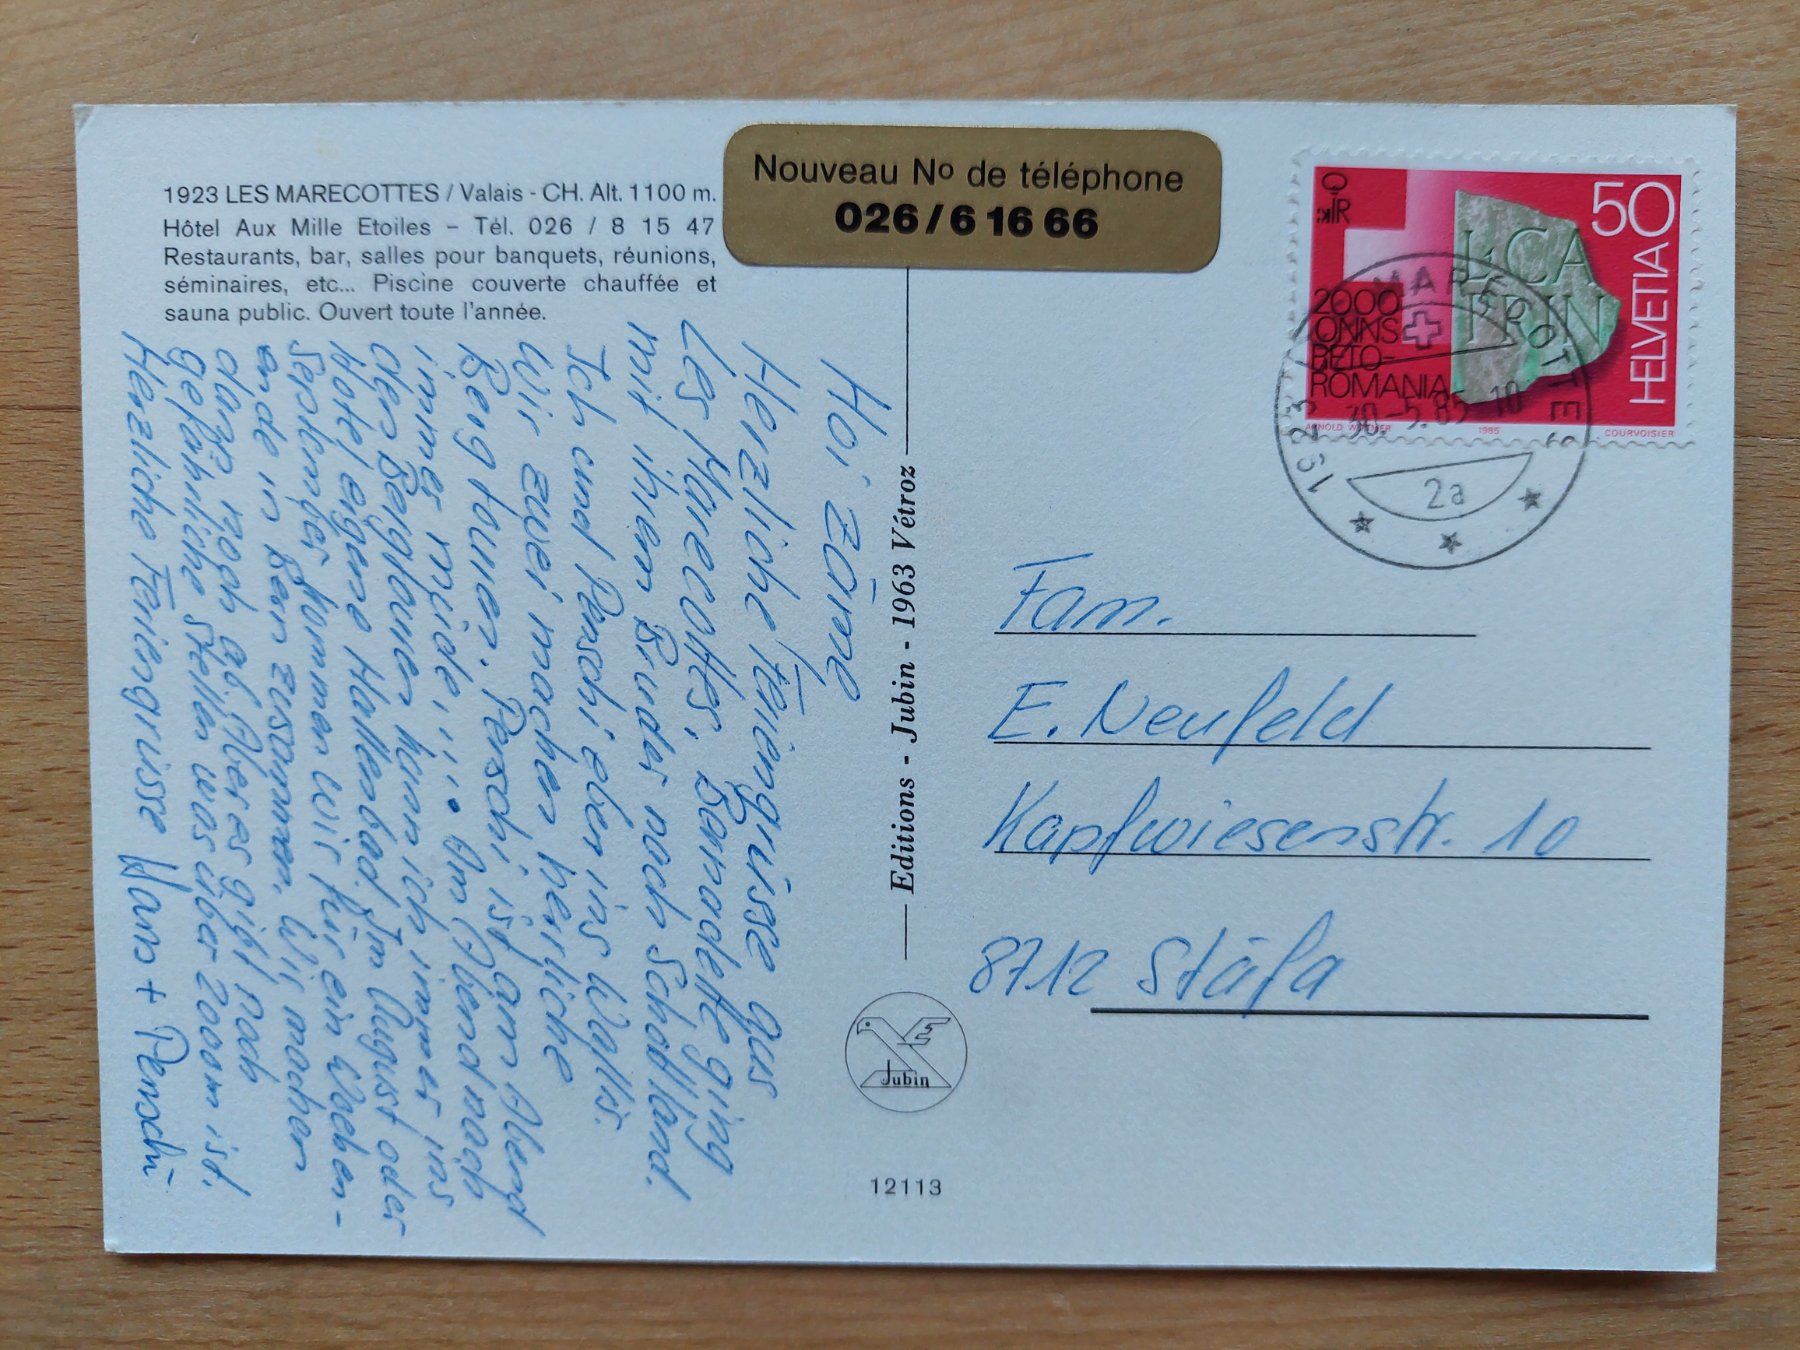 1923 LES MARECOTTES / Valais - CH. Alt. 1100 m.
Hôtel Aux Mille Etoiles – Tél. 026 / 8 15 47
Restaurants, bar, salles pour banquets, réunions,
séminaires, etc... Piscine couverte chauffée et
sauna public. Ouvert toute l'année.
Nouveau No de téléphone
026/6 16 66
Hoi zäme
Herzliche Feriengrüsse aus
Les Marecottes, Bernadette ging
mit ihrem Bruder nach Schottland.
Ich und Penschi eben ins Wallis.
Wir zwei machen herliche
Bergtouren. Penschi ist am Abend
immer müde.... Am Abend nach
der Bergtouer kann ich immer ins
Hotel eigene Hallenbad. Im August oder
September kommen wir für ein Wochen-
ende in Bern zusammen. Wir machen
dann noch ab. Aber es gibt noch
gefährliche Stellen was über 2000m ist.
Herzliche Feriengrüsse Hans + Penschi
Editions - Jubin - 1963 Vétroz
Jubin
12113
50
HELVETIA
2000
ONNS
RETO-
ROMANIA
L·CA
ARNOLD WITTMER
1985
COURVOISIER
1923 LES MARECOTTES
30.-5.85-10
2a
Fam.
E. Neufeld
Kapfwiesenstr. 10
8712 Stäfa